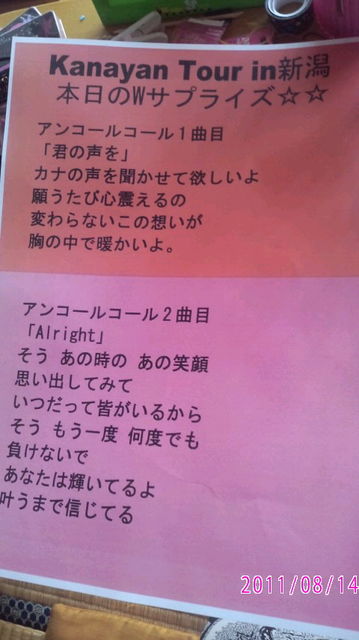 Kanayan Tour in新潟
本日のWサプライズ☆☆
アンコールコール１曲目
「君の声を」
カナの声を聞かせて欲しいよ
願うたび心震えるの
変わらないこの想いが
胸の中で暖かいよ。
アンコールコール２曲目
「Alright」
そう あの時の あの笑顔
思い出してみて
いつだって皆がいるから
そう もう一度 何度でも
負けないで
あなたは輝いてるよ
叶うまで信じてる
2011/08/14